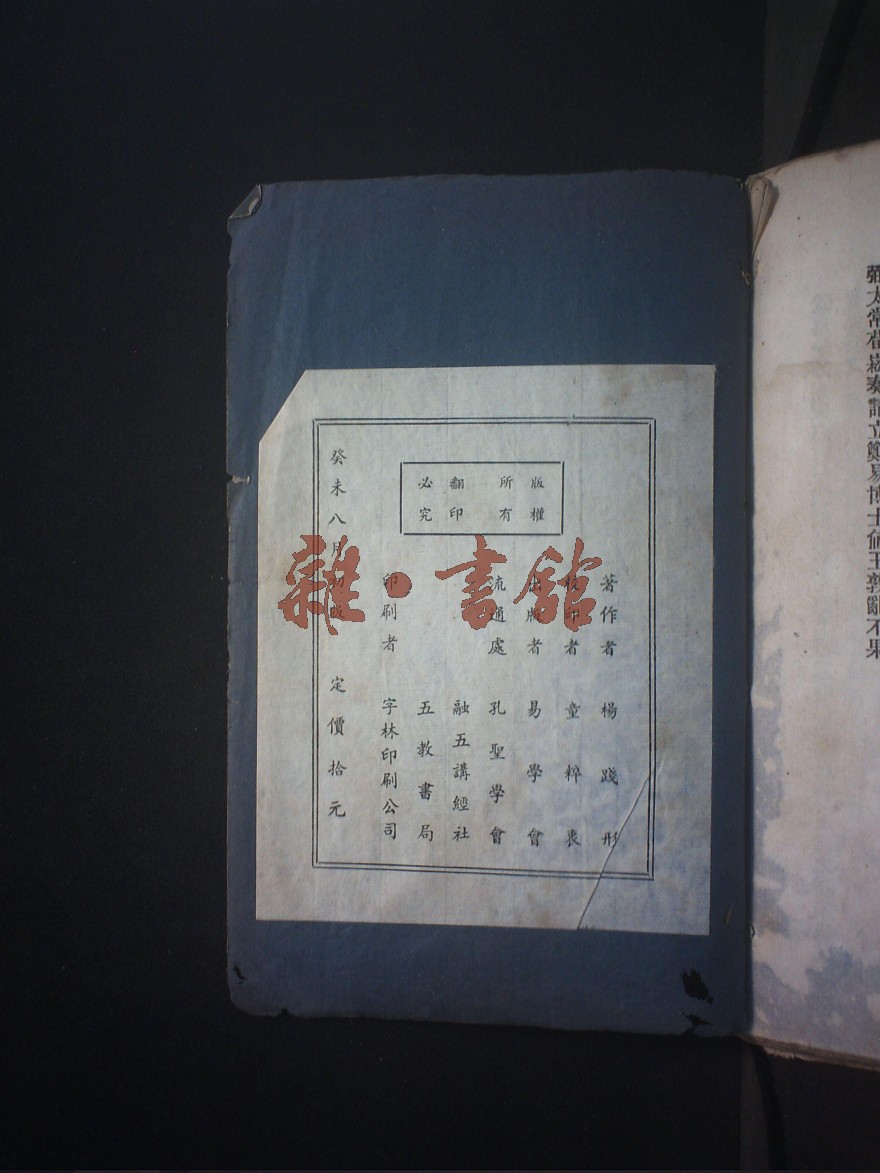 強太常荀崧奏請立鄭易博士値王敦亂不果
版權所有
翻印必究
著作者 楊踐形
校印者 童粹喪
出版者 易學會
流通處 孔聖學會
融五講經社
五教書局
印刷者 字林印刷公司
癸未八月初版 定價拾元
雜·書館